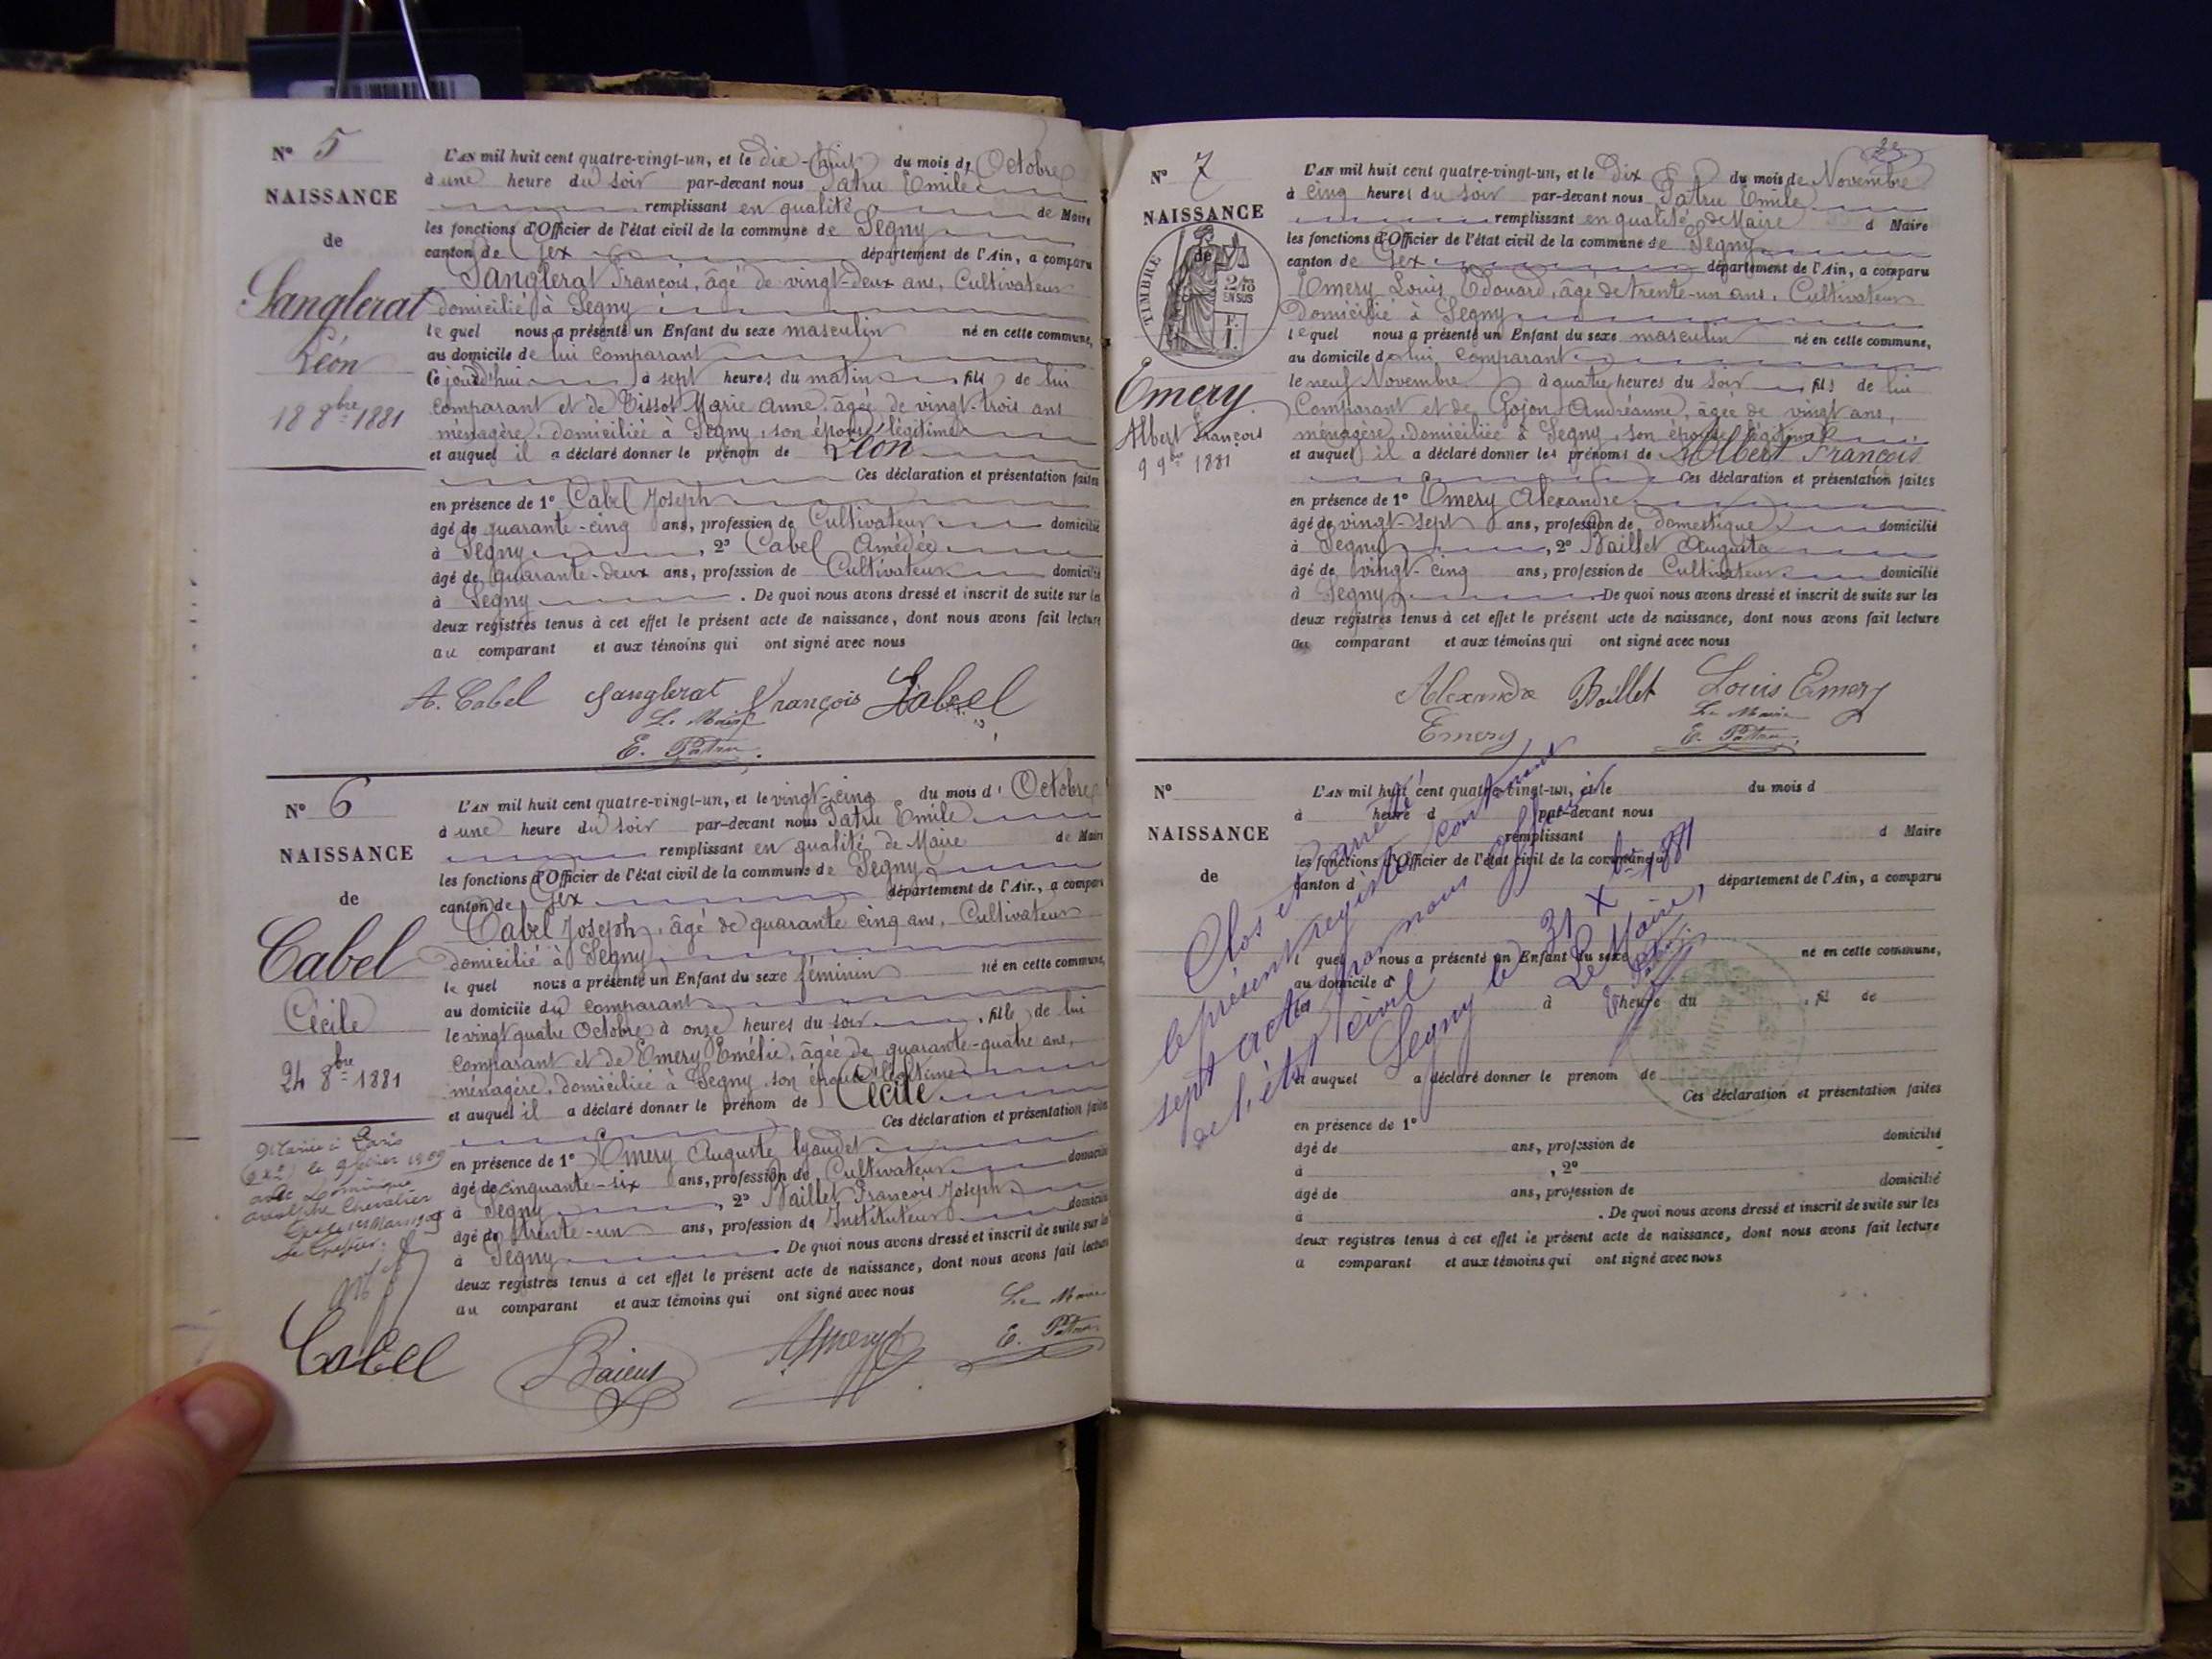 N° 5
NAISSANCE
de
Sanglerat
Léon
18 8bre 1881
L'AN mil huit cent quatre-vingt-un, et le dix-huit du mois d'Octobre
à une heure du soir par-devant nous Patru Emile
remplissant en qualité de Maire
les fonctions d'Officier de l'état civil de la commune de Segny
canton de Gex département de l'Ain, a comparu
Sanglerat François, âgé de vingt-deux ans, Cultivateur
domicilié à Segny
le quel nous a présenté un Enfant du sexe masculin né en cette commune,
au domicile de lui comparant
Ce jourd'hui à sept heures du matin fils de lui
comparant et de Tissot Marie Anne, âgée de vingt-trois ans
ménagère, domiciliée à Segny, son épouse légitime
et auquel il a déclaré donner le prénom de Léon
Ces déclaration et présentation faites
en présence de 1° Cabel Joseph
âgé de quarante-cinq ans, profession de Cultivateur domicilié
à Segny, 2° Cabel Amédée
âgé de quarante-deux ans, profession de Cultivateur domicilié
à Segny. De quoi nous avons dressé et inscrit de suite sur les
deux registres tenus à cet effet le présent acte de naissance, dont nous avons fait lecture
au comparant et aux témoins qui ont signé avec nous
A. Cabel Sanglerat François Cabel
Le Maire
E. Patru
N° 6
NAISSANCE
de
Cabel
Cécile
24 8bre 1881
Mariée à Paris
le 9 février 1909
avec Dominique
Adolphe Chevalier
L'AN mil huit cent quatre-vingt-un, et le vingt-cinq du mois d'Octobre
à une heure du soir par-devant nous Patru Emile
remplissant en qualité de Maire de Maire
les fonctions d'Officier de l'état civil de la commune de Segny
canton de Gex département de l'Ain, a comparu
Cabel Joseph, âgé de quarante cinq ans, Cultivateur
domicilié à Segny
le quel nous a présenté un Enfant du sexe féminin né en cette commune,
au domicile du comparant
le vingt quatre Octobre à onze heures du soir, fille de lui
comparant et de Emery Emélie, âgée de quarante-quatre ans,
ménagère, domiciliée à Segny, son épouse légitime
et auquel il a déclaré donner le prénom de Cécile
Ces déclaration et présentation faites
en présence de 1° Emery Auguste
âgé de cinquante-six ans, profession de Cultivateur domicilié
à Segny, 2° Baillet François Joseph
âgé de trente-un ans, profession de Instituteur domicilié
à Segny. De quoi nous avons dressé et inscrit de suite sur les
deux registres tenus à cet effet le présent acte de naissance, dont nous avons fait lecture
au comparant et aux témoins qui ont signé avec nous
Le Maire
Cabel E. Patru
N° 7
NAISSANCE
de
TIMBRE
2/10
EN SUS
Emery
Albert François
9 9bre 1881
L'AN mil huit cent quatre-vingt-un, et le Dix du mois de Novembre
à cinq heures du soir par-devant nous Patru Emile
remplissant en qualité de Maire d Maire
les fonctions d'Officier de l'état civil de la commune de Segny
canton de Gex département de l'Ain, a comparu
Emery Louis Edouard, âgé de trente-un ans, Cultivateur
Domicilié à Segny
le quel nous a présenté un Enfant du sexe masculin né en cette commune,
au domicile de lui comparant
le neuf Novembre à quatre heures du soir, fils de lui
Comparant et de Gojon Andréanne, âgée de vingt ans,
ménagère, domiciliée à Segny, son épouse légitime
et auquel il a déclaré donner les prénoms de Albert François
Ces déclaration et présentation faites
en présence de 1° Emery Alexandre
âgé de vingt-sept ans, profession de domestique domicilié
à Segny, 2° Baillet Augusta
âgé de vingt-cinq ans, profession de Cultivateur domicilié
à Segny. De quoi nous avons dressé et inscrit de suite sur les
deux registres tenus à cet effet le présent acte de naissance, dont nous avons fait lecture
au comparant et aux témoins qui ont signé avec nous
Alexandre Baillet Louis Emery
Emery Le Maire
E. Patru
N°
NAISSANCE
de
L'AN mil huit cent quatre-vingt-un, et le du mois d
à heure d par-devant nous
remplissant d Maire
les fonctions d'Officier de l'état civil de la commune d
canton d département de l'Ain, a comparu
l quel nous a présenté un Enfant du sexe né en cette commune,
au domicile d
le à heure du, fil de
et auquel a déclaré donner le prénom de
Ces déclaration et présentation faites
en présence de 1°
âgé de ans, profession de domicilié
à, 2°
âgé de ans, profession de domicilié
à. De quoi nous avons dressé et inscrit de suite sur les
deux registres tenus à cet effet le présent acte de naissance, dont nous avons fait lecture
a comparant et aux témoins qui ont signé avec nous
Clos et arrêté
le présent registre contenant
sept actes par nous officier
de l'état civil
Segny le 31 Xbre 1881
Le Maire,
E. Patru